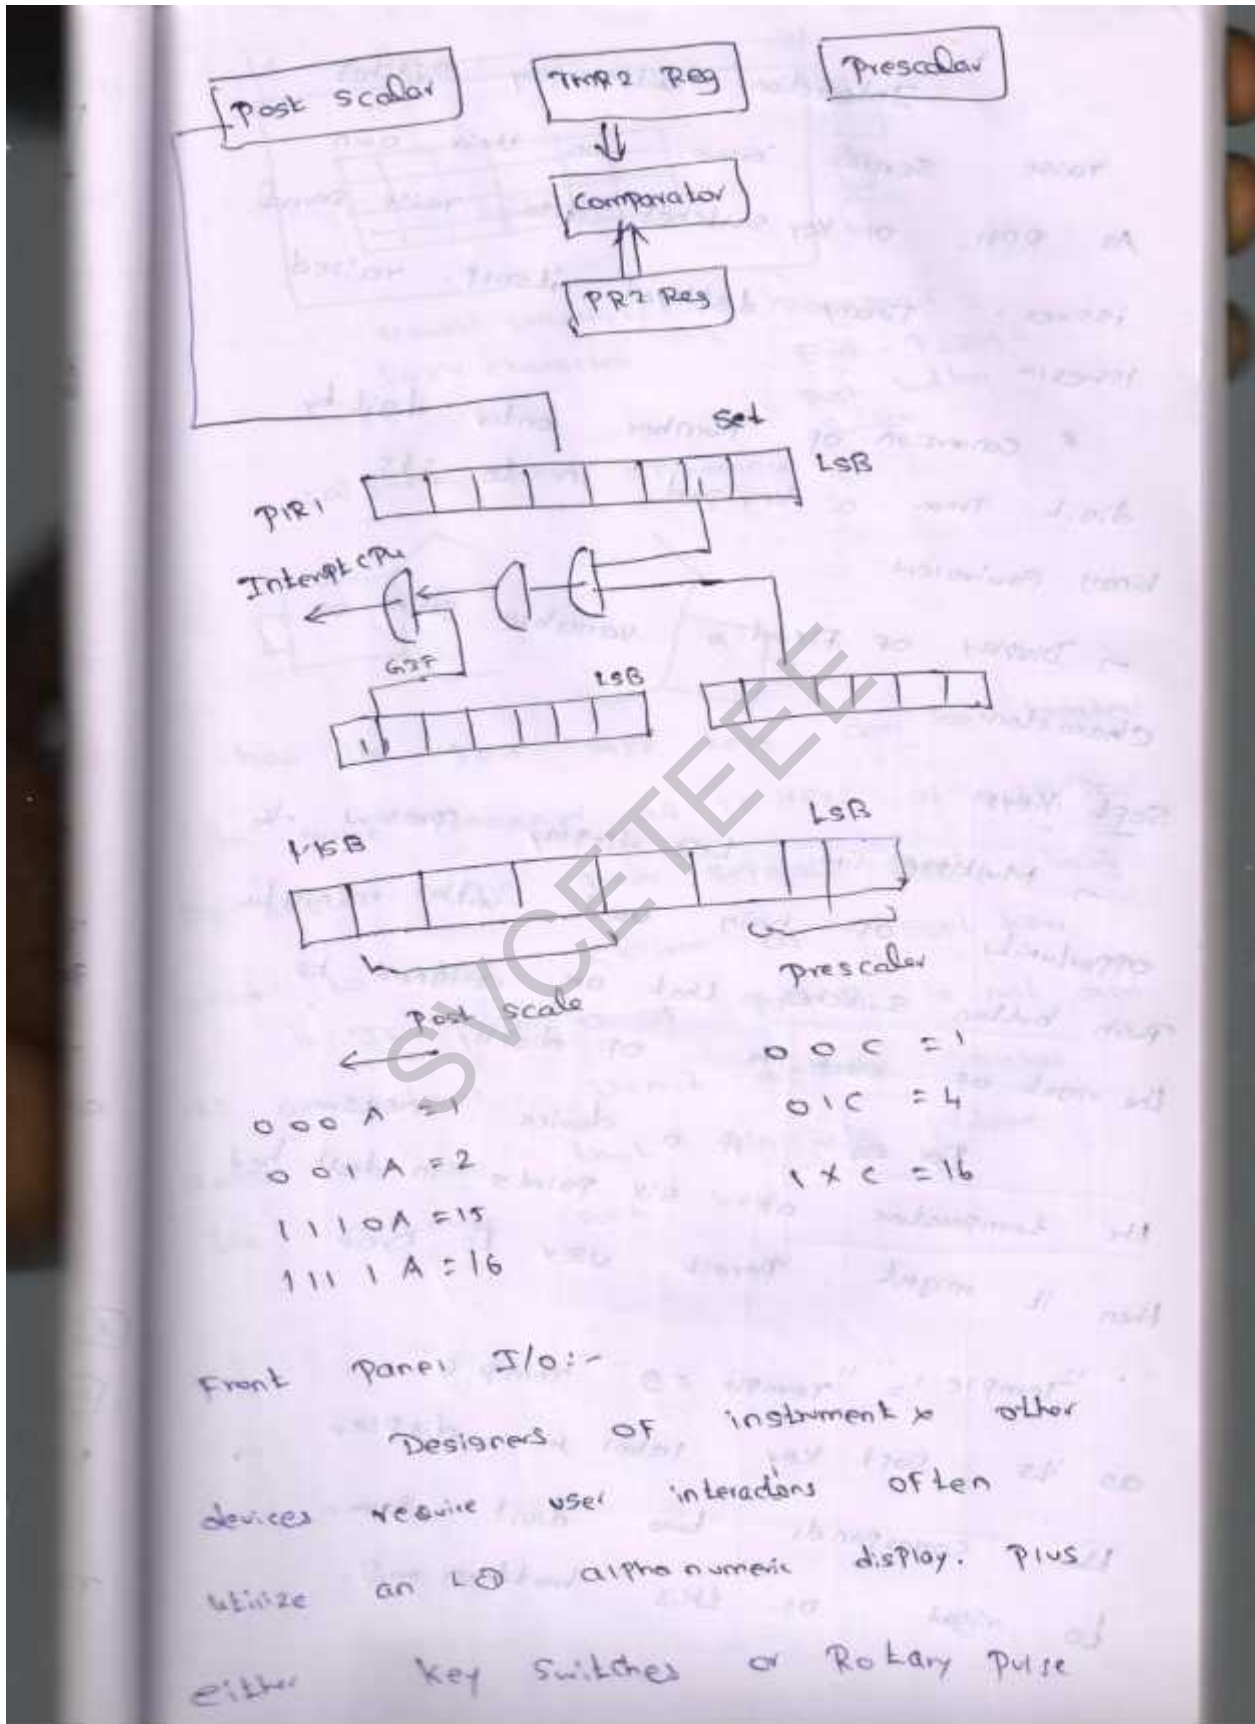 Post Scalar
TMR2 Reg
Prescalar
Comparator
PR2 Reg
Set
LSB
PIR1
Interupt CPU
GIF
LSB
MSB
LSB
Post scale
Prescaler
000A = 1
001A = 2
1110A = 15
1111A = 16
00C = 1
01C = 4
1XC = 16
SVCETEEE
Front Panel I/o:-
Designers of instrument & other
devices require user interactions often
utilize an alphanumeric display. Plus
either key switches or Rotary Pulse